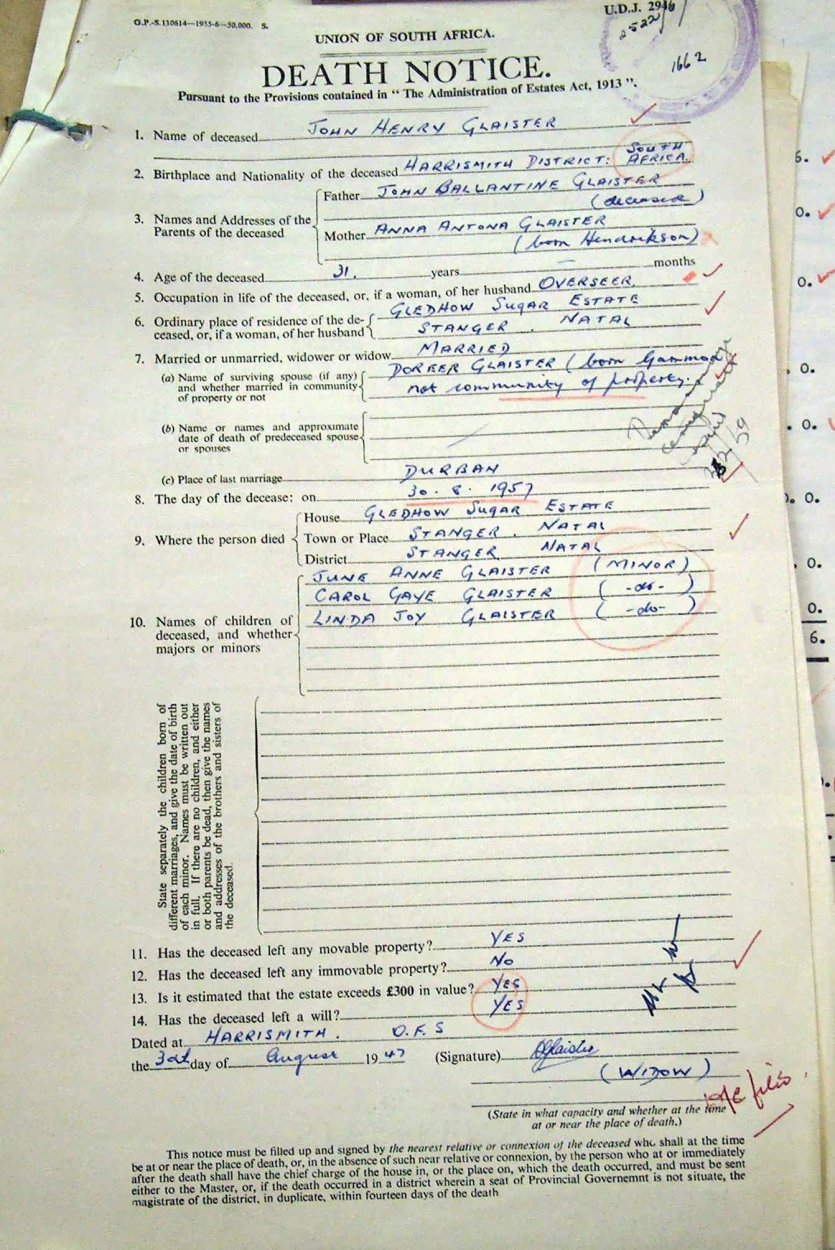 G.P.-S.130614—1955-6—50,000. S.
U.D.J. 2946
2522/
1662
UNION OF SOUTH AFRICA.
DEATH NOTICE.
Pursuant to the Provisions contained in "The Administration of Estates Act, 1913".
1. Name of deceased JOHN HENRY GLAISTER
2. Birthplace and Nationality of the deceased HARRISMITH DISTRICT: SOUTH AFRICA.
3. Names and Addresses of the Parents of the deceased
Father JOHN BALLANTINE GLAISTER
(deceased)
Mother ANNA ANTONA GLAISTER
(born Hendrikson)
4. Age of the deceased 31. years — months
5. Occupation in life of the deceased, or, if a woman, of her husband OVERSEER.
6. Ordinary place of residence of the de- GLEDHOW SUGAR ESTATE
ceased, or, if a woman, of her husband STANGER. NATAL
7. Married or unmarried, widower or widow MARRIED
(a) Name of surviving spouse (if any) DOREEN GLAISTER (born
and whether married in community not community of property.
of property or not
(b) Name or names and approximate
date of death of predeceased spouse
or spouses
(c) Place of last marriage DURBAN
8. The day of the decease: on 30.8.1957
9. Where the person died
House GLEDHOW SUGAR ESTATE
Town or Place STANGER. NATAL
District STANGER NATAL
10. Names of children of
deceased, and whether
majors or minors
JUNE ANNE GLAISTER (MINOR)
CAROL GAYE GLAISTER (-do-)
LINDA JOY GLAISTER (-do-)
State separately the children born of
different marriages, and give the date of birth
of each minor. Names must be written out
in full. If there are no children, and either
or both parents be dead, then give the names
and addresses of the brothers and sisters of
the deceased.
11. Has the deceased left any movable property? YES
12. Has the deceased left any immovable property? NO
13. Is it estimated that the estate exceeds £300 in value? YES
14. Has the deceased left a will? YES
Dated at HARRISMITH. O.F.S
the day of August 19 (Signature) DGlaister
(WIDOW)
(State in what capacity and whether at the time
at or near the place of death.)
This notice must be filled up and signed by the nearest relative or connexion of the deceased who shall at the time
be at or near the place of death, or, in the absence of such near relative or connexion, by the person who at or immediately
after the death shall have the chief charge of the house in, or the place on, which the death occurred, and must be sent
either to the Master, or, if the death occurred in a district wherein a seat of Provincial Governemnt is not situate, the
magistrate of the district, in duplicate, within fourteen days of the death